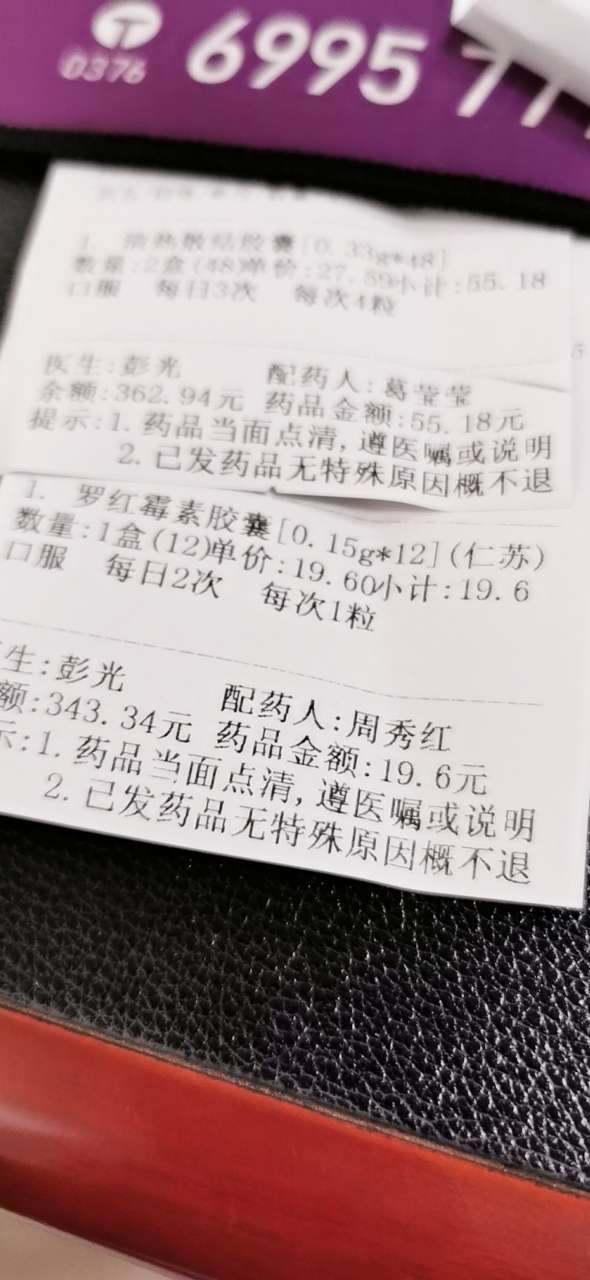 0376 6995 77
1. 清热散结胶囊[0.33g*48]
数量:2盒(48)单价:27.59小计:55.18
口服 每日3次 每次4粒
医生:彭光 配药人:葛莹莹
余额:362.94元 药品金额:55.18元
提示:1.药品当面点清,遵医嘱或说明
2.已发药品无特殊原因概不退
1. 罗红霉素胶囊[0.15g*12](仁苏)
数量:1盒(12)单价:19.60小计:19.6
口服 每日2次 每次1粒
生:彭光 配药人:周秀红
额:343.34元 药品金额:19.6元
示:1.药品当面点清,遵医嘱或说明
2.已发药品无特殊原因概不退